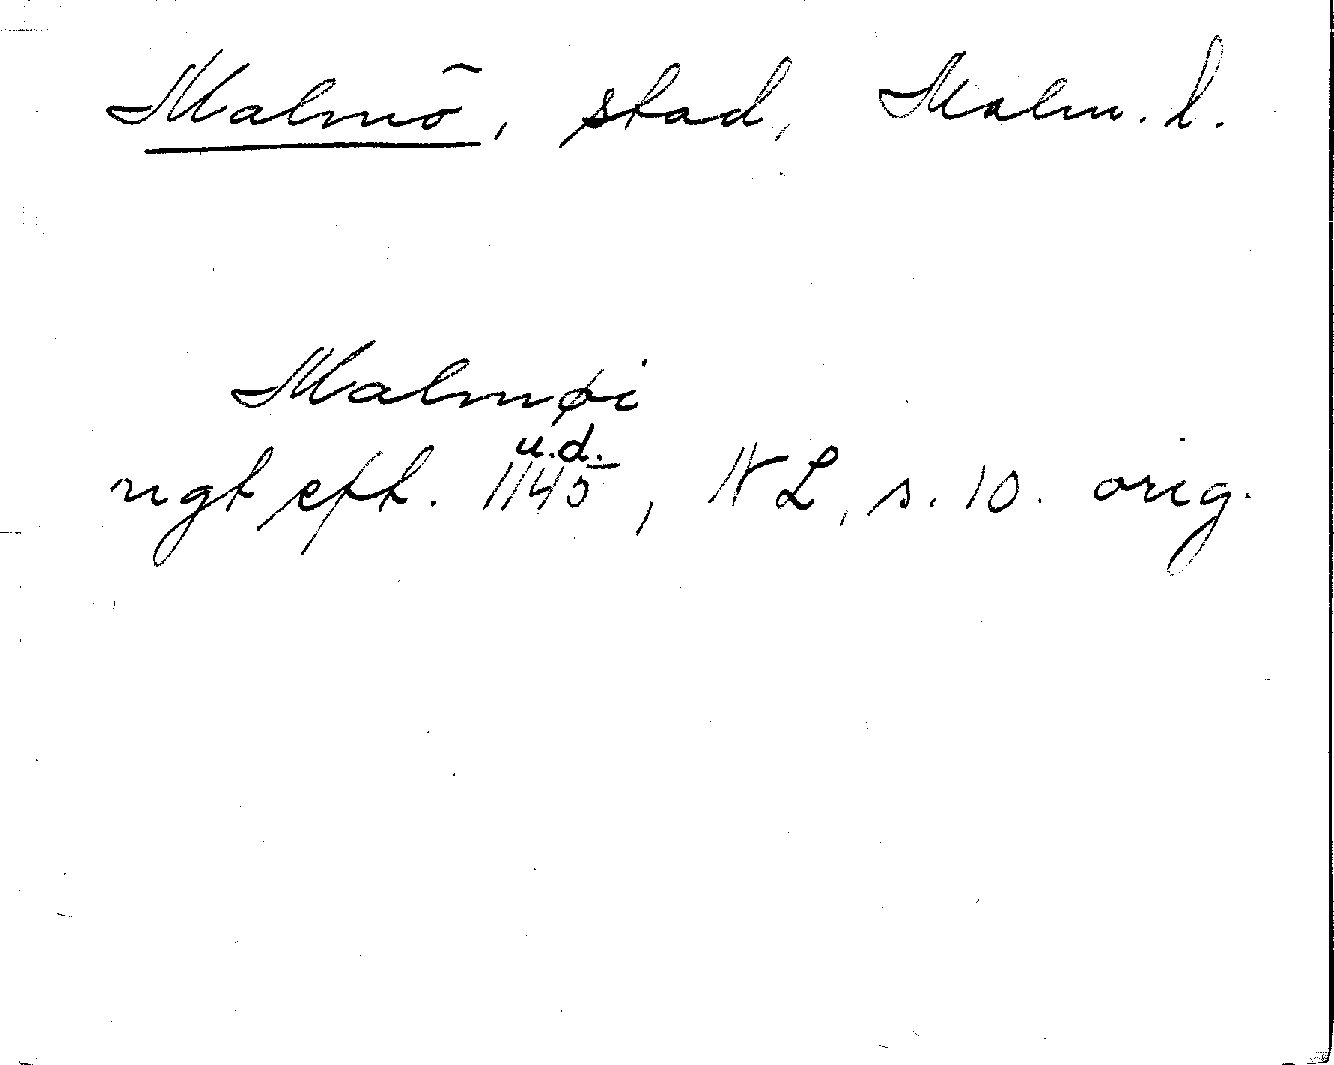 Malmö, stad, Malm. l.
Malmøi
u.d.
ngt eft. 1145, NL, s. 10. orig.